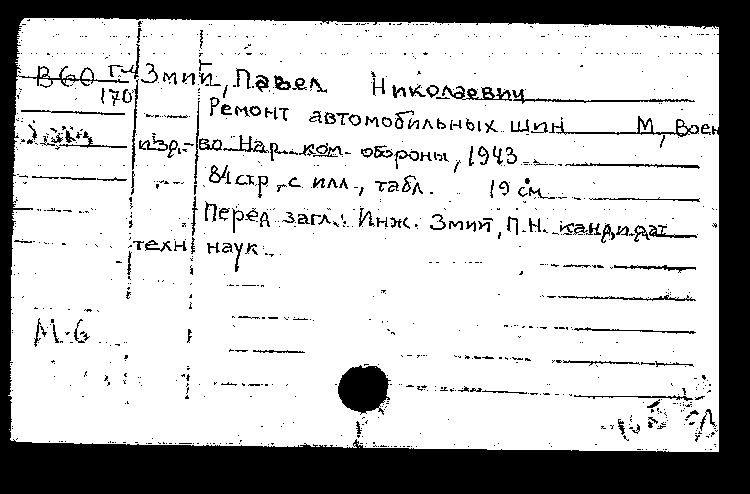 В60 Г-4 Змий, Павел Николаевич
170
Ремонт автомобильных шин М, Воен
изд.-во Нар. ком. обороны, 1943
84 стр, с илл., табл. 19 см
Перед загл.: Инж. Змий, П.Н. кандидат
техн наук.
М-6